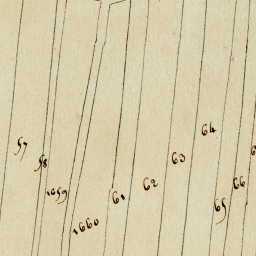 57
58
1059
1660
61
62
63
64
65
66